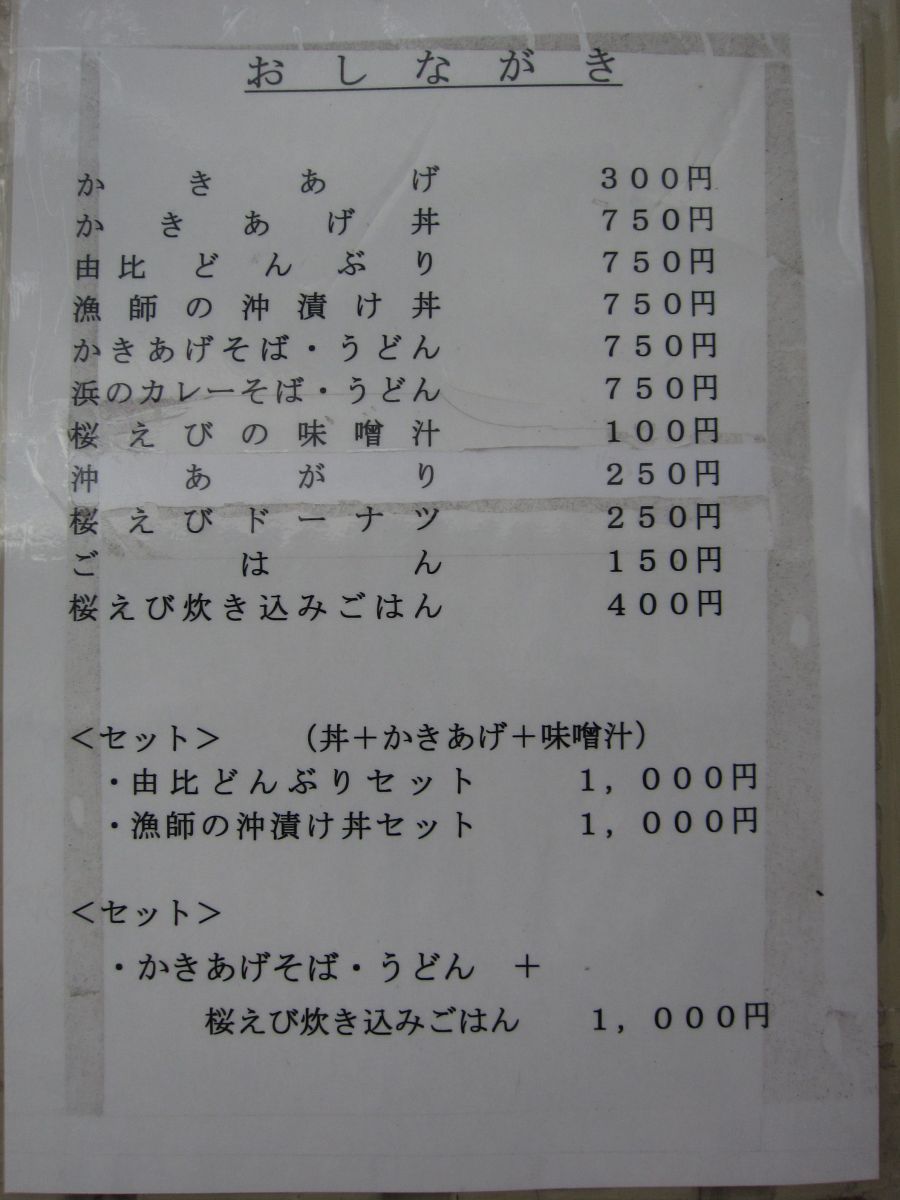 おしながき
かきあげ 300円
かきあげ丼 750円
由比どんぶり 750円
漁師の沖漬け丼 750円
かきあげそば・うどん 750円
浜のカレーそば・うどん 750円
桜えびの味噌汁 100円
沖あがり 250円
桜えびドーナツ 250円
ごはん 150円
桜えび炊き込みごはん 400円
＜セット＞ （丼＋かきあげ＋味噌汁）
・由比どんぶりセット 1，000円
・漁師の沖漬け丼セット 1，000円
＜セット＞
・かきあげそば・うどん ＋
桜えび炊き込みごはん 1，000円